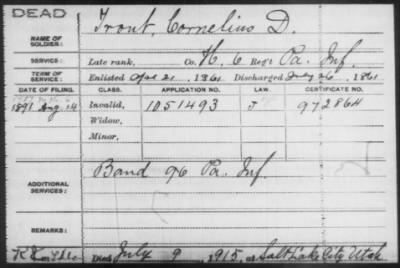 DEAD
NAME OF SOLDIER: Trout, Cornelius D.
SERVICE: Late rank, Co. H, 6 Reg't Pa. Inf.
TERM OF SERVICE: Enlisted Apr 21, 1861 Discharged July 26, 1861
DATE OF FILING. CLASS. APPLICATION NO. LAW. CERTIFICATE NO.
1891 Aug. 14 Invalid, 1051493 J 972864
Widow,
Minor,
ADDITIONAL SERVICES: Band 96 Pa. Inf.
REMARKS:
Died July 9, 1915, at Salt Lake City Utah